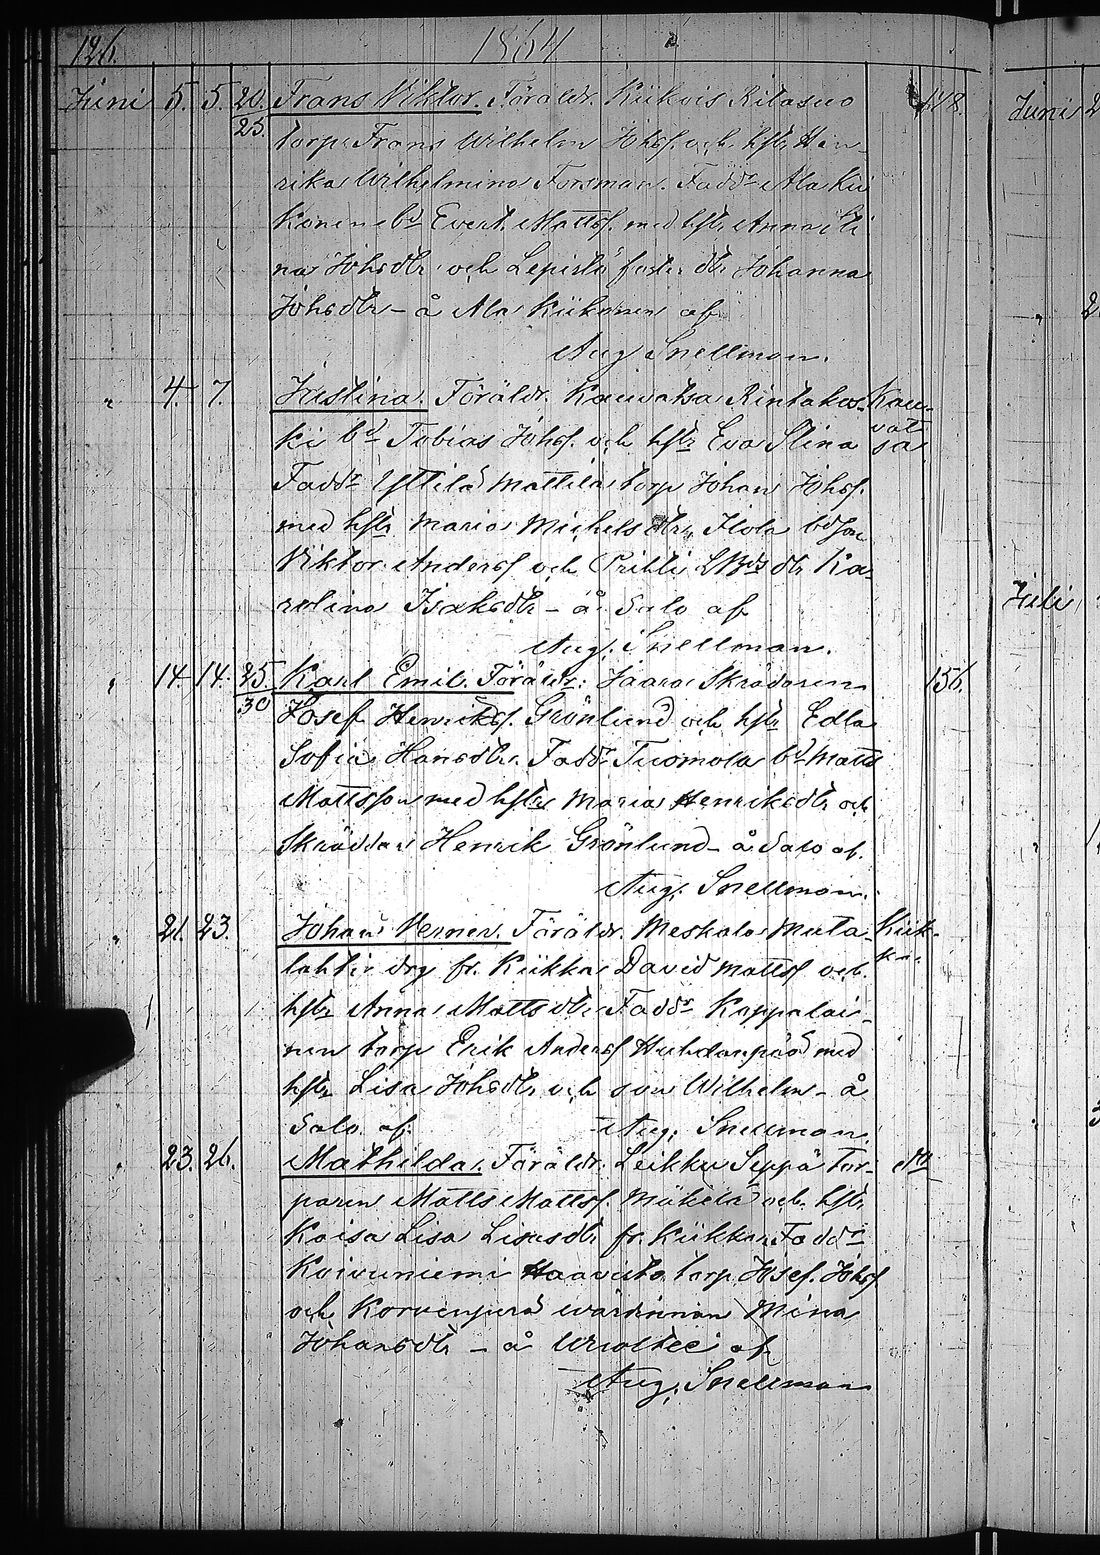 126. 1864
Juni 5. 5. 20/25. Frans Viktor. Föräldr. Kiikois Ritasuo 148.
torp. Frans Wilhelm Johsf. och hstr Hen-
rika Wilhelmina Forsman. Faddr Ala Kii
konen bd Evert Mattsf. med hstr Anna Sti
na Johsdtr och Lepistö foster dtr Johanna
Johsdtr - å Ala Kiikonen af
Aug Snellman.
" 4. 7. Justina. Föräldr. Kauvatsa Rintakos- Kau-
ki bd Tobias Johsf. och hstr Eva Stina vat
sa
Faddr Yttilä Mattila torp Johan Johsf.
med hstr Maria Michelsdtr, Ilola bdson
Viktor Andersf och Prihti dtr Ka-
rolina Isaksdtr - å Salo af
Aug. Snellman.
" 14. 14. 25/30 Karl Emil. Föräldr: Jaara Skrädaren 156.
Josef Henriksf. Grönlund och hstr Edla
Sofia Hansdtr. Faddr Tuomola bd Matts
Mattsson med hstr Maria Henriksdtr och
Skräddar Henrik Grönlund - å Salo af.
Aug. Snellman.
" 21. 23. Johan Verner. Föräldr. Meskala Muta- Kiik-
lahti drg fr. Kiikka David Mattsf och ka.
hstr Anna Mattsdtr Faddr Koppalai-
nen torp Erik Andersf Huhdanpää med
hstr Lisa Johsdtr och son Wilhelm - å
Salo af. Aug. Snellman.
" 23. 26. Mathilda. Föräldr. Leikku Seppä tor- do
paren Matts Mattsf. Mäkelä och hstr
Kaisa Lisa dtr fr. Kiikka. Faddr
Koivuniemi Haavisto torp. Josef Johsf
och Korvenperä wärdinnan Mina
Johansdtr - å af
Aug. Snellman
Juni 2
" 2
Juli